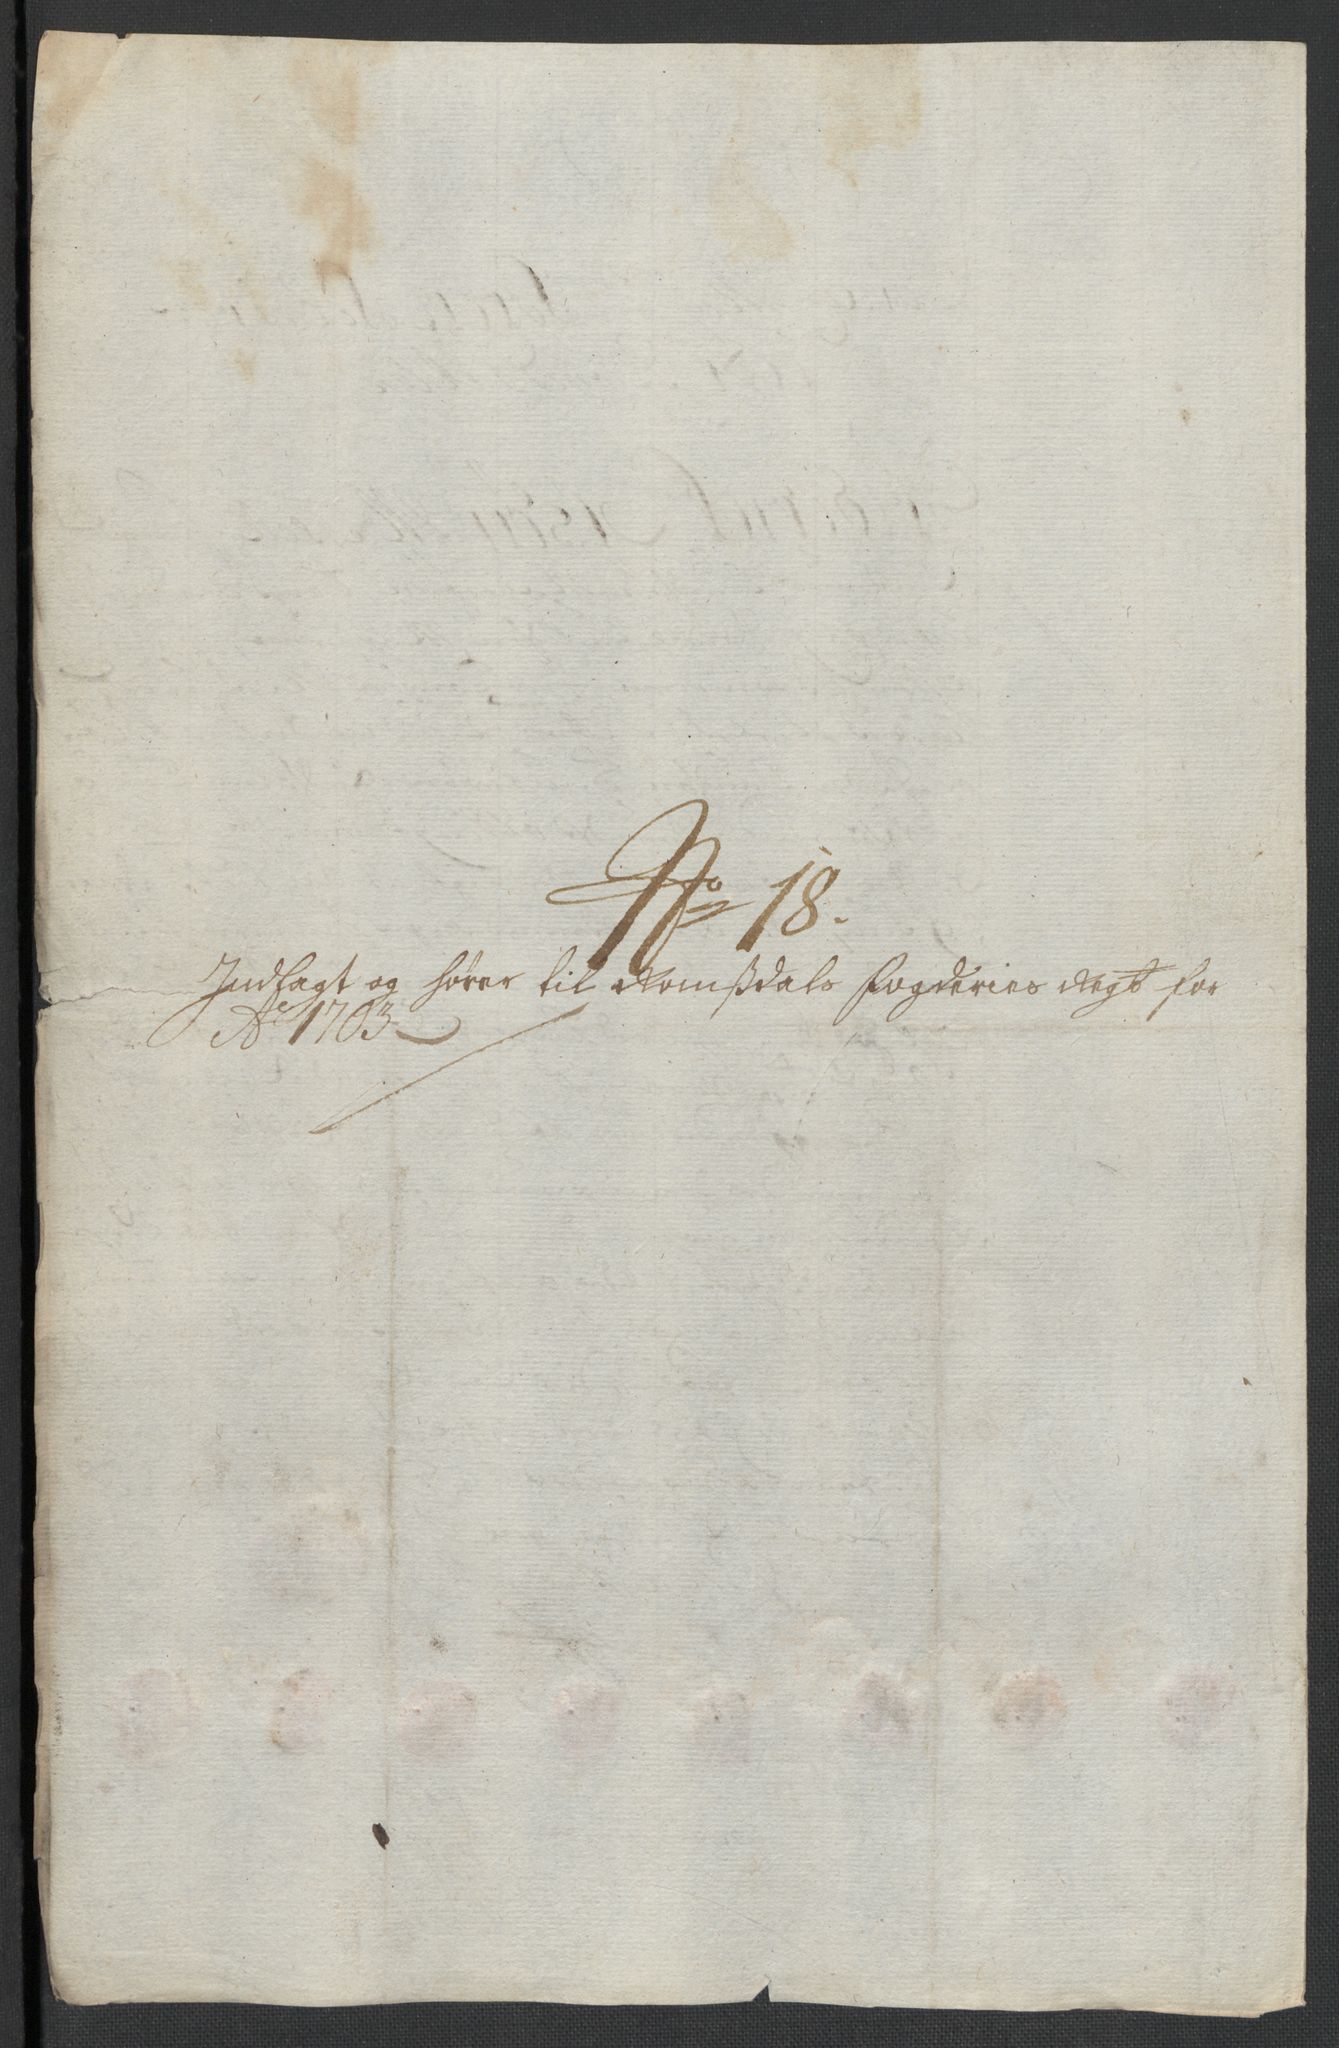 No 18.
Indlagt og hører til Romßdals fogderies Regt for
Ao 1703